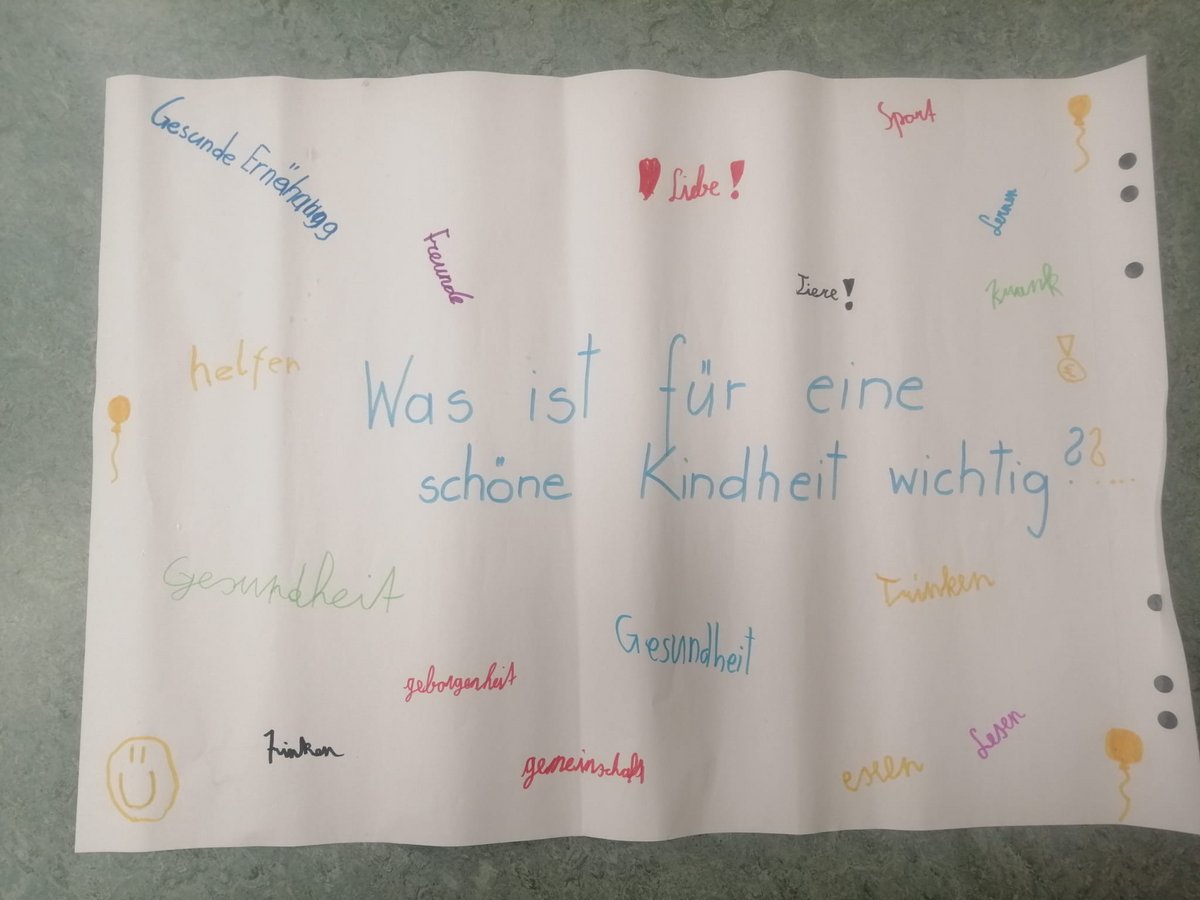 Gesunde Ernährung
Sport
♥ Liebe!
Lernen
Freunde
Tiere!
helfen
€
Was ist für eine
schöne Kindheit wichtig ??....
Gesundheit
Trinken
Gesundheit
geborgenheit
Trinken
gemeinschaft
essen
Lesen